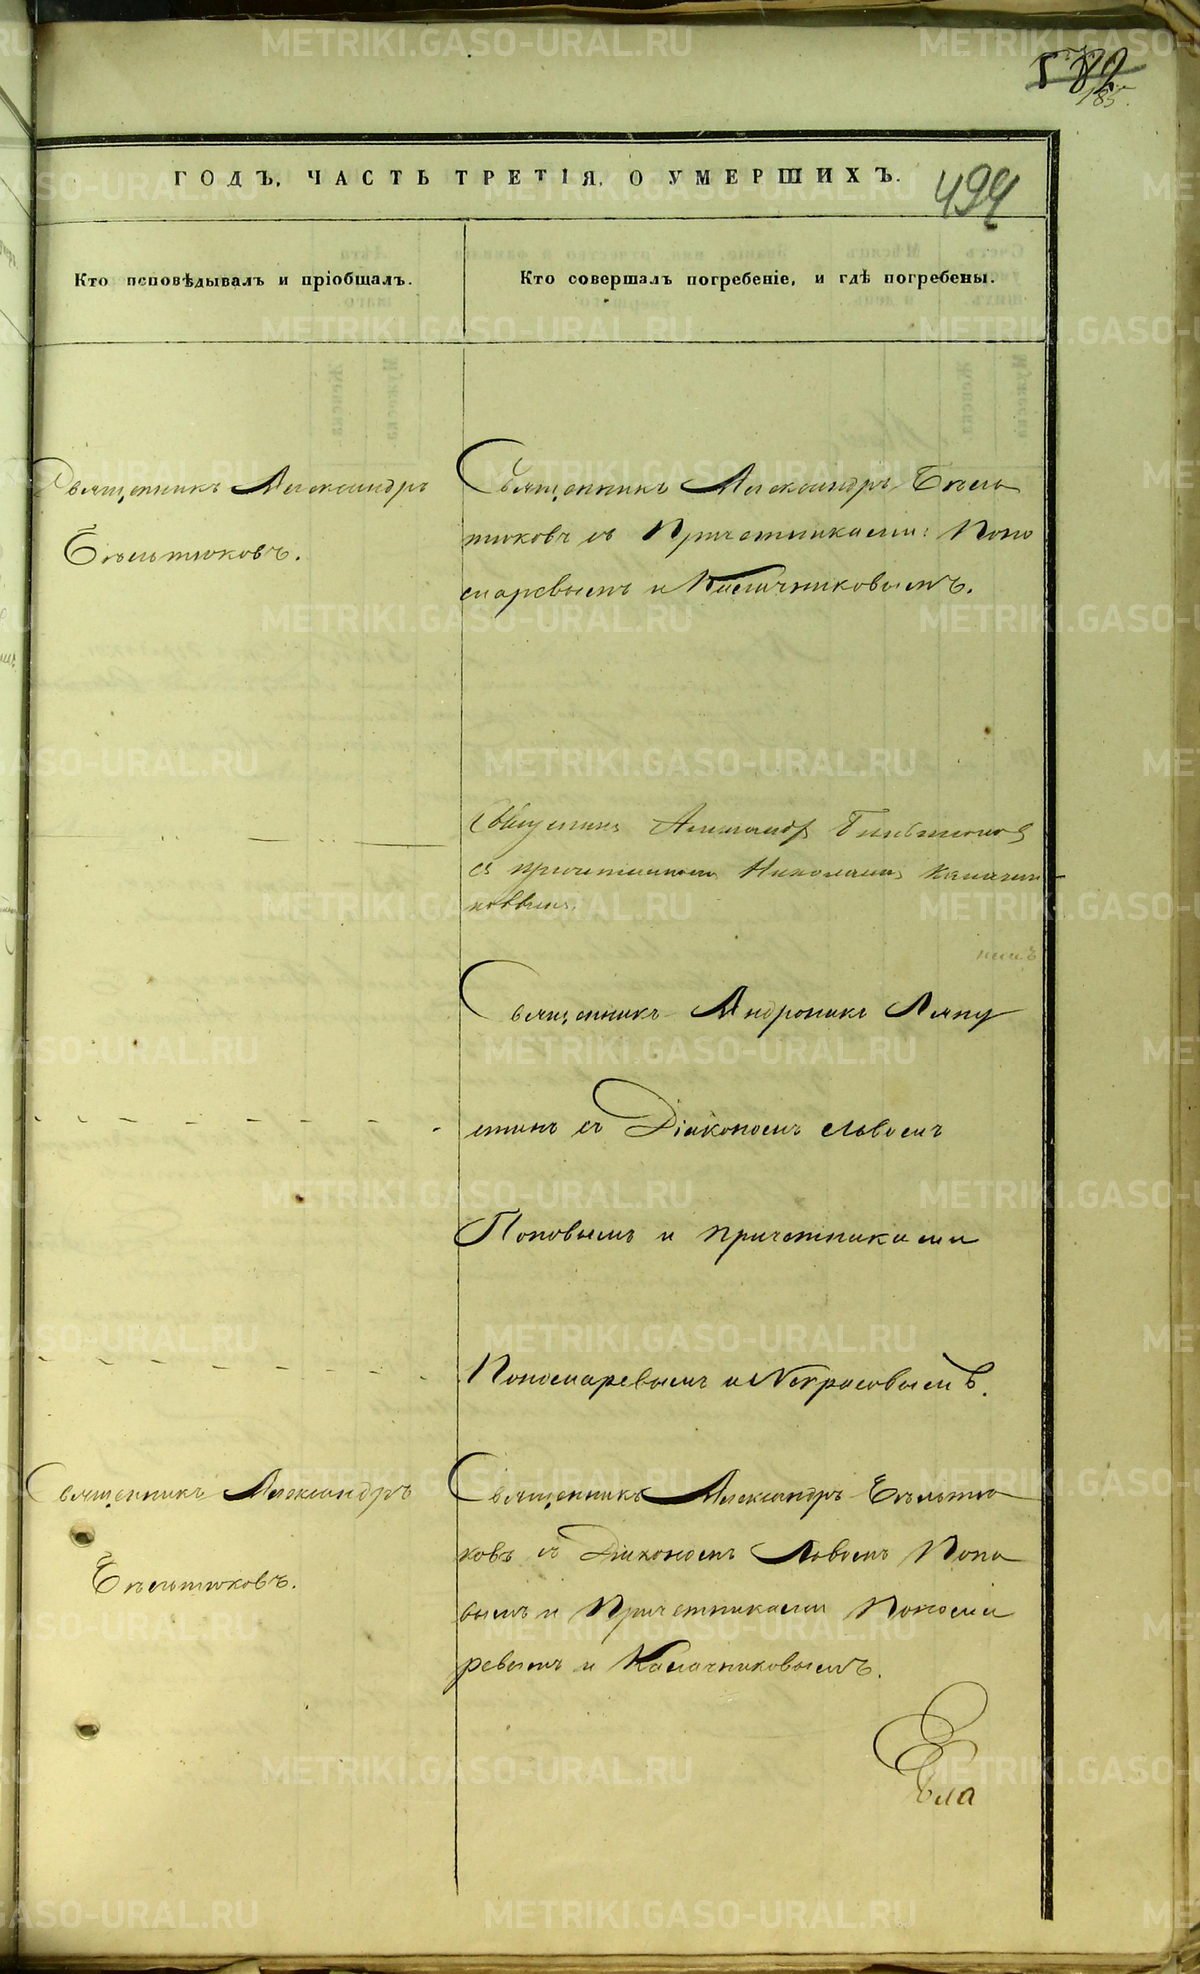 582
185.
ГОДЪ, ЧАСТЬ ТРЕТІЯ, О УМЕРШИХЪ.
494
Кто исповѣдывалъ и пріобщалъ.
Кто совершалъ погребеніе, и гдѣ погребены.
Священникъ Александръ
Бѣльтюковъ.
Священникъ Александръ Бѣль
тюковъ съ Причетниками: Поно
маревымъ и Калачниковымъ.
Священникъ Александръ Бѣльтюковъ
съ причетникомъ Николаемъ Калачни-
ковымъ.
Священникъ Андроникъ Ляпу
стинъ съ Діакономъ Львомъ
Поповымъ и причетниками
Пономаревымъ и Некрасовымъ.
Священникъ Александръ
Бѣльтюковъ.
Священникъ Александръ Бѣльтю
ковъ съ Діакономъ Львомъ Попо
вымъ и Причетниками Понома
ревымъ и Калачниковымъ.
METRIKI.GASO-URAL.RU